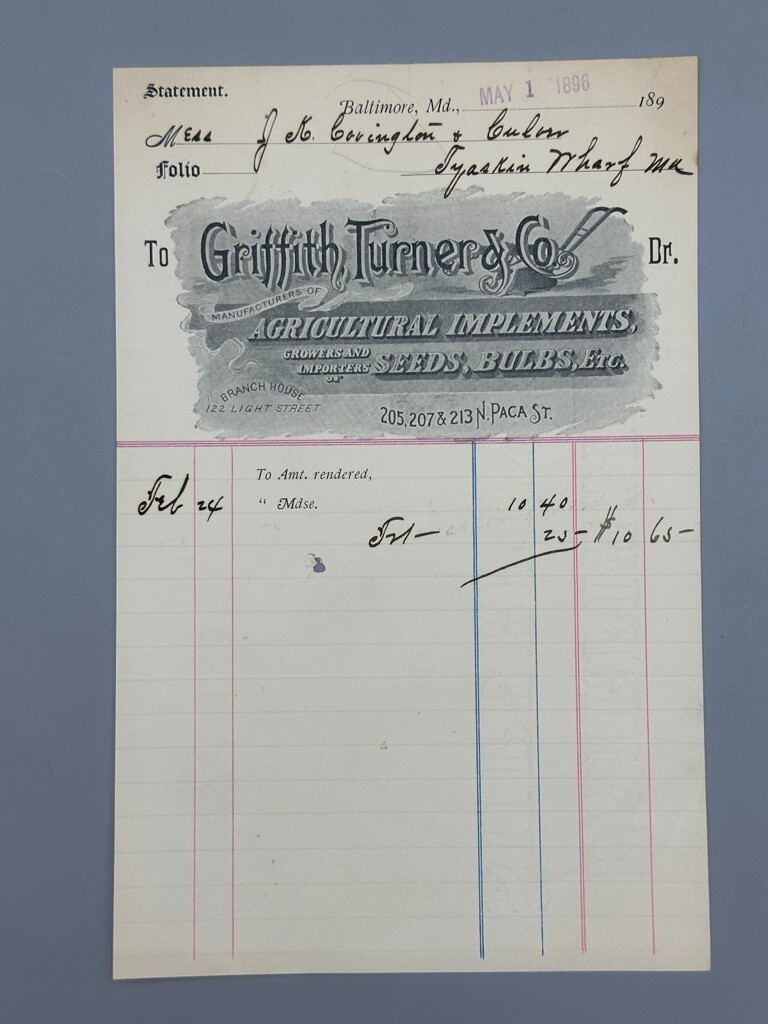 Statement.
Baltimore, Md., MAY 1 1896 189
Mess J. K. Covington & Culver
Folio Tyaskin Wharf Md
To Griffith, Turner & Co. Dr.
MANUFACTURERS OF
AGRICULTURAL IMPLEMENTS,
GROWERS AND IMPORTERS OF SEEDS, BULBS, ETC.
BRANCH HOUSE
122 LIGHT STREET
205, 207 & 213 N. PACA ST.
To Amt. rendered,
Feb 24 " Mdse. 10 40
Frt— 25 $10 65—